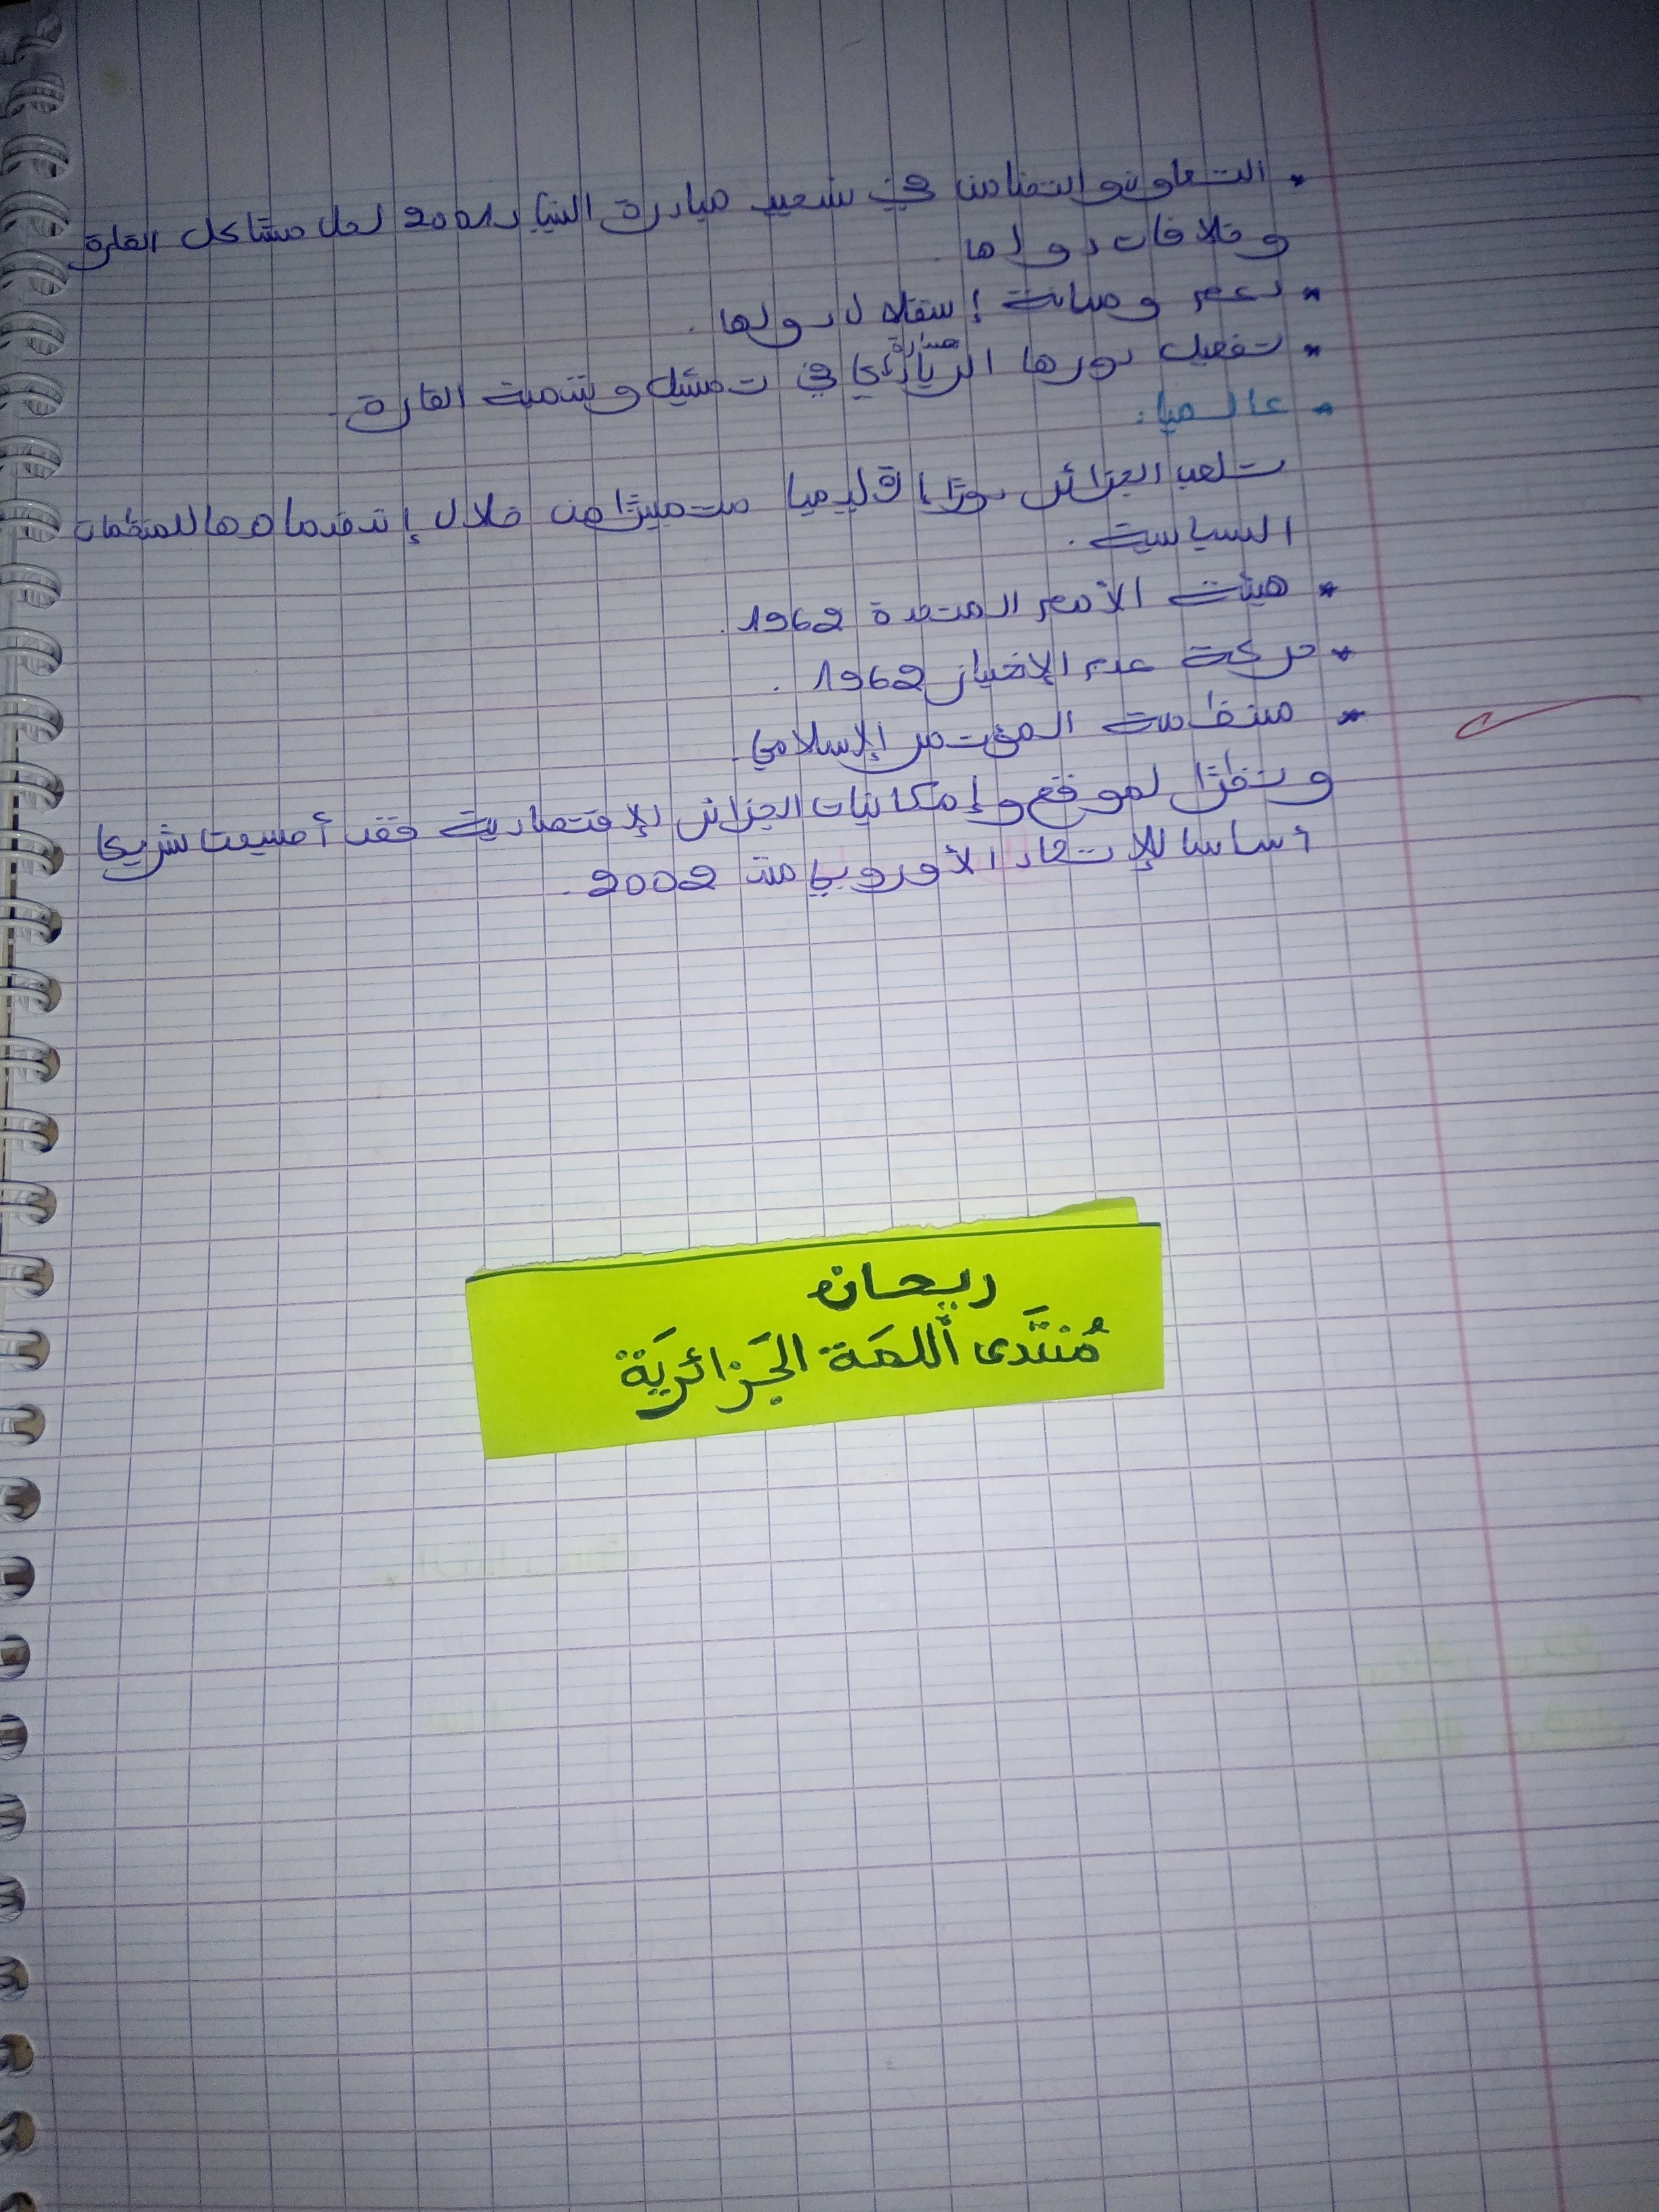 * التعاون والتضامن في تسعيد مبادرة النيباد 2001 لحل مشاكل القارة
وخلافات دولها
* دعم وصيانة إستقلال دولها.
* تفعيل دورها الريادي في تمثيل وتنمية القارة.
* عالميا:
تلعب الجزائر دورًا إقليميا متميزا من خلال إنضمامها للمنظمات
السياسية.
* هيئة الأمم المتحدة 1962.
* حركة عدم الإنحياز 1962.
* منظمة المؤتمر الإسلامي.
ونظرًا لموقع وإمكانيات الجزائر الإقتصادية فقد أصبحت شريكا
أساسا للإتحاد الأوروبي منذ 2002.
ريحان
مُنتَدى اللمَة الجَزائريَة